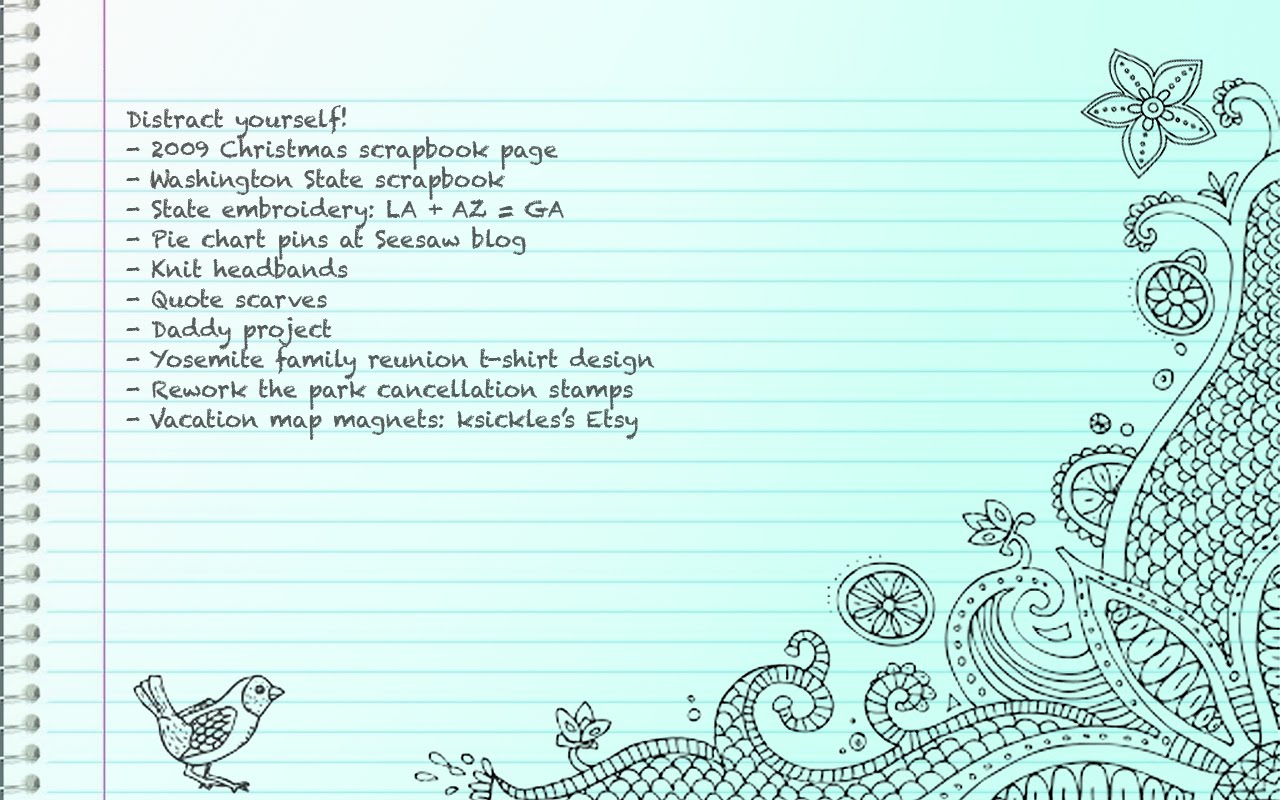 Distract yourself!
- 2009 Christmas scrapbook page
- Washington State scrapbook
- State embroidery: LA + AZ = GA
- Pie chart pins at Seesaw blog
- Knit headbands
- Quote scarves
- Daddy project
- Yosemite family reunion t-shirt design
- Rework the park cancellation stamps
- Vacation map magnets: ksickles's Etsy